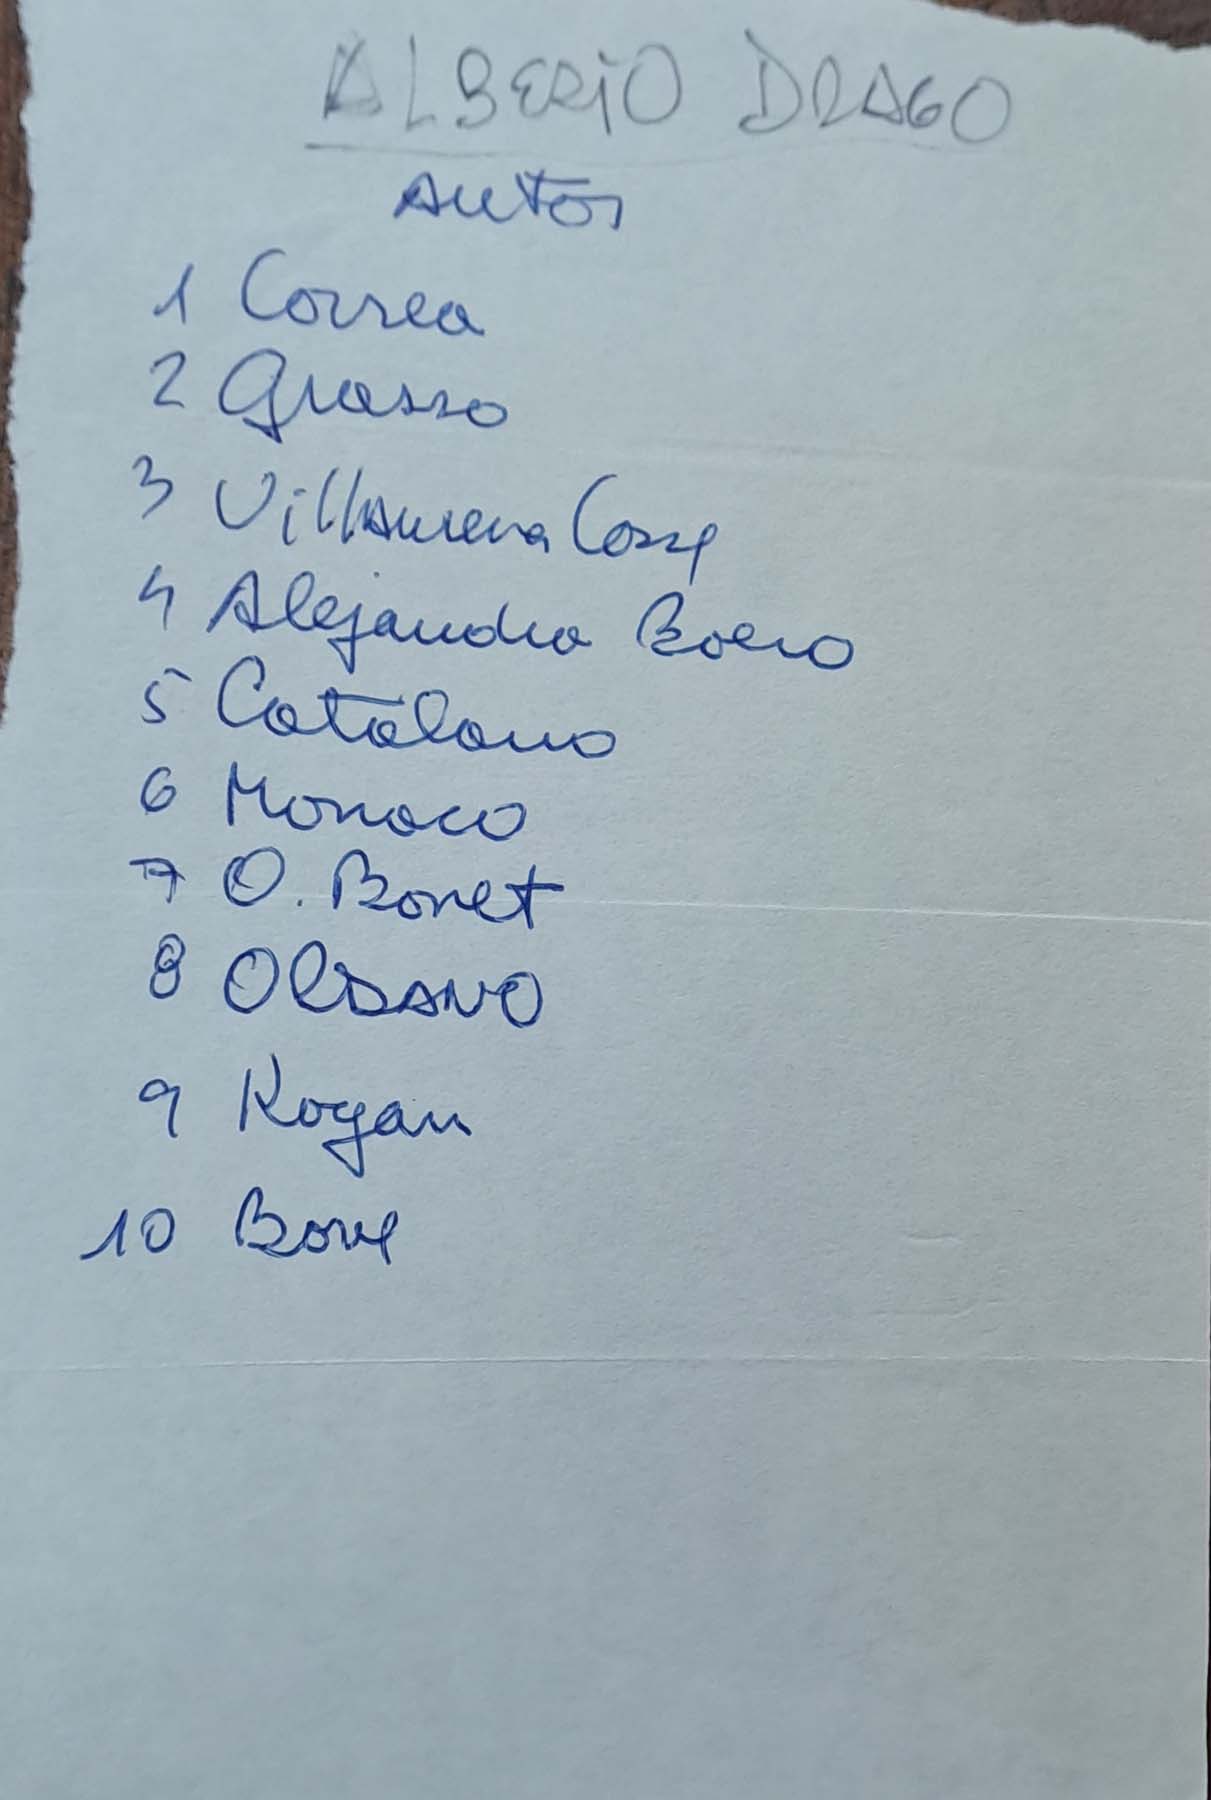 ALBERTO DRAGO
Autor
1 Correa
2 Grasso
3 Villanueva Cosse
4 Alejandra Boero
5 Catalano
6 Monaco
7 O. Bonet
8 OLDANO
9 Kogan
10 Bove